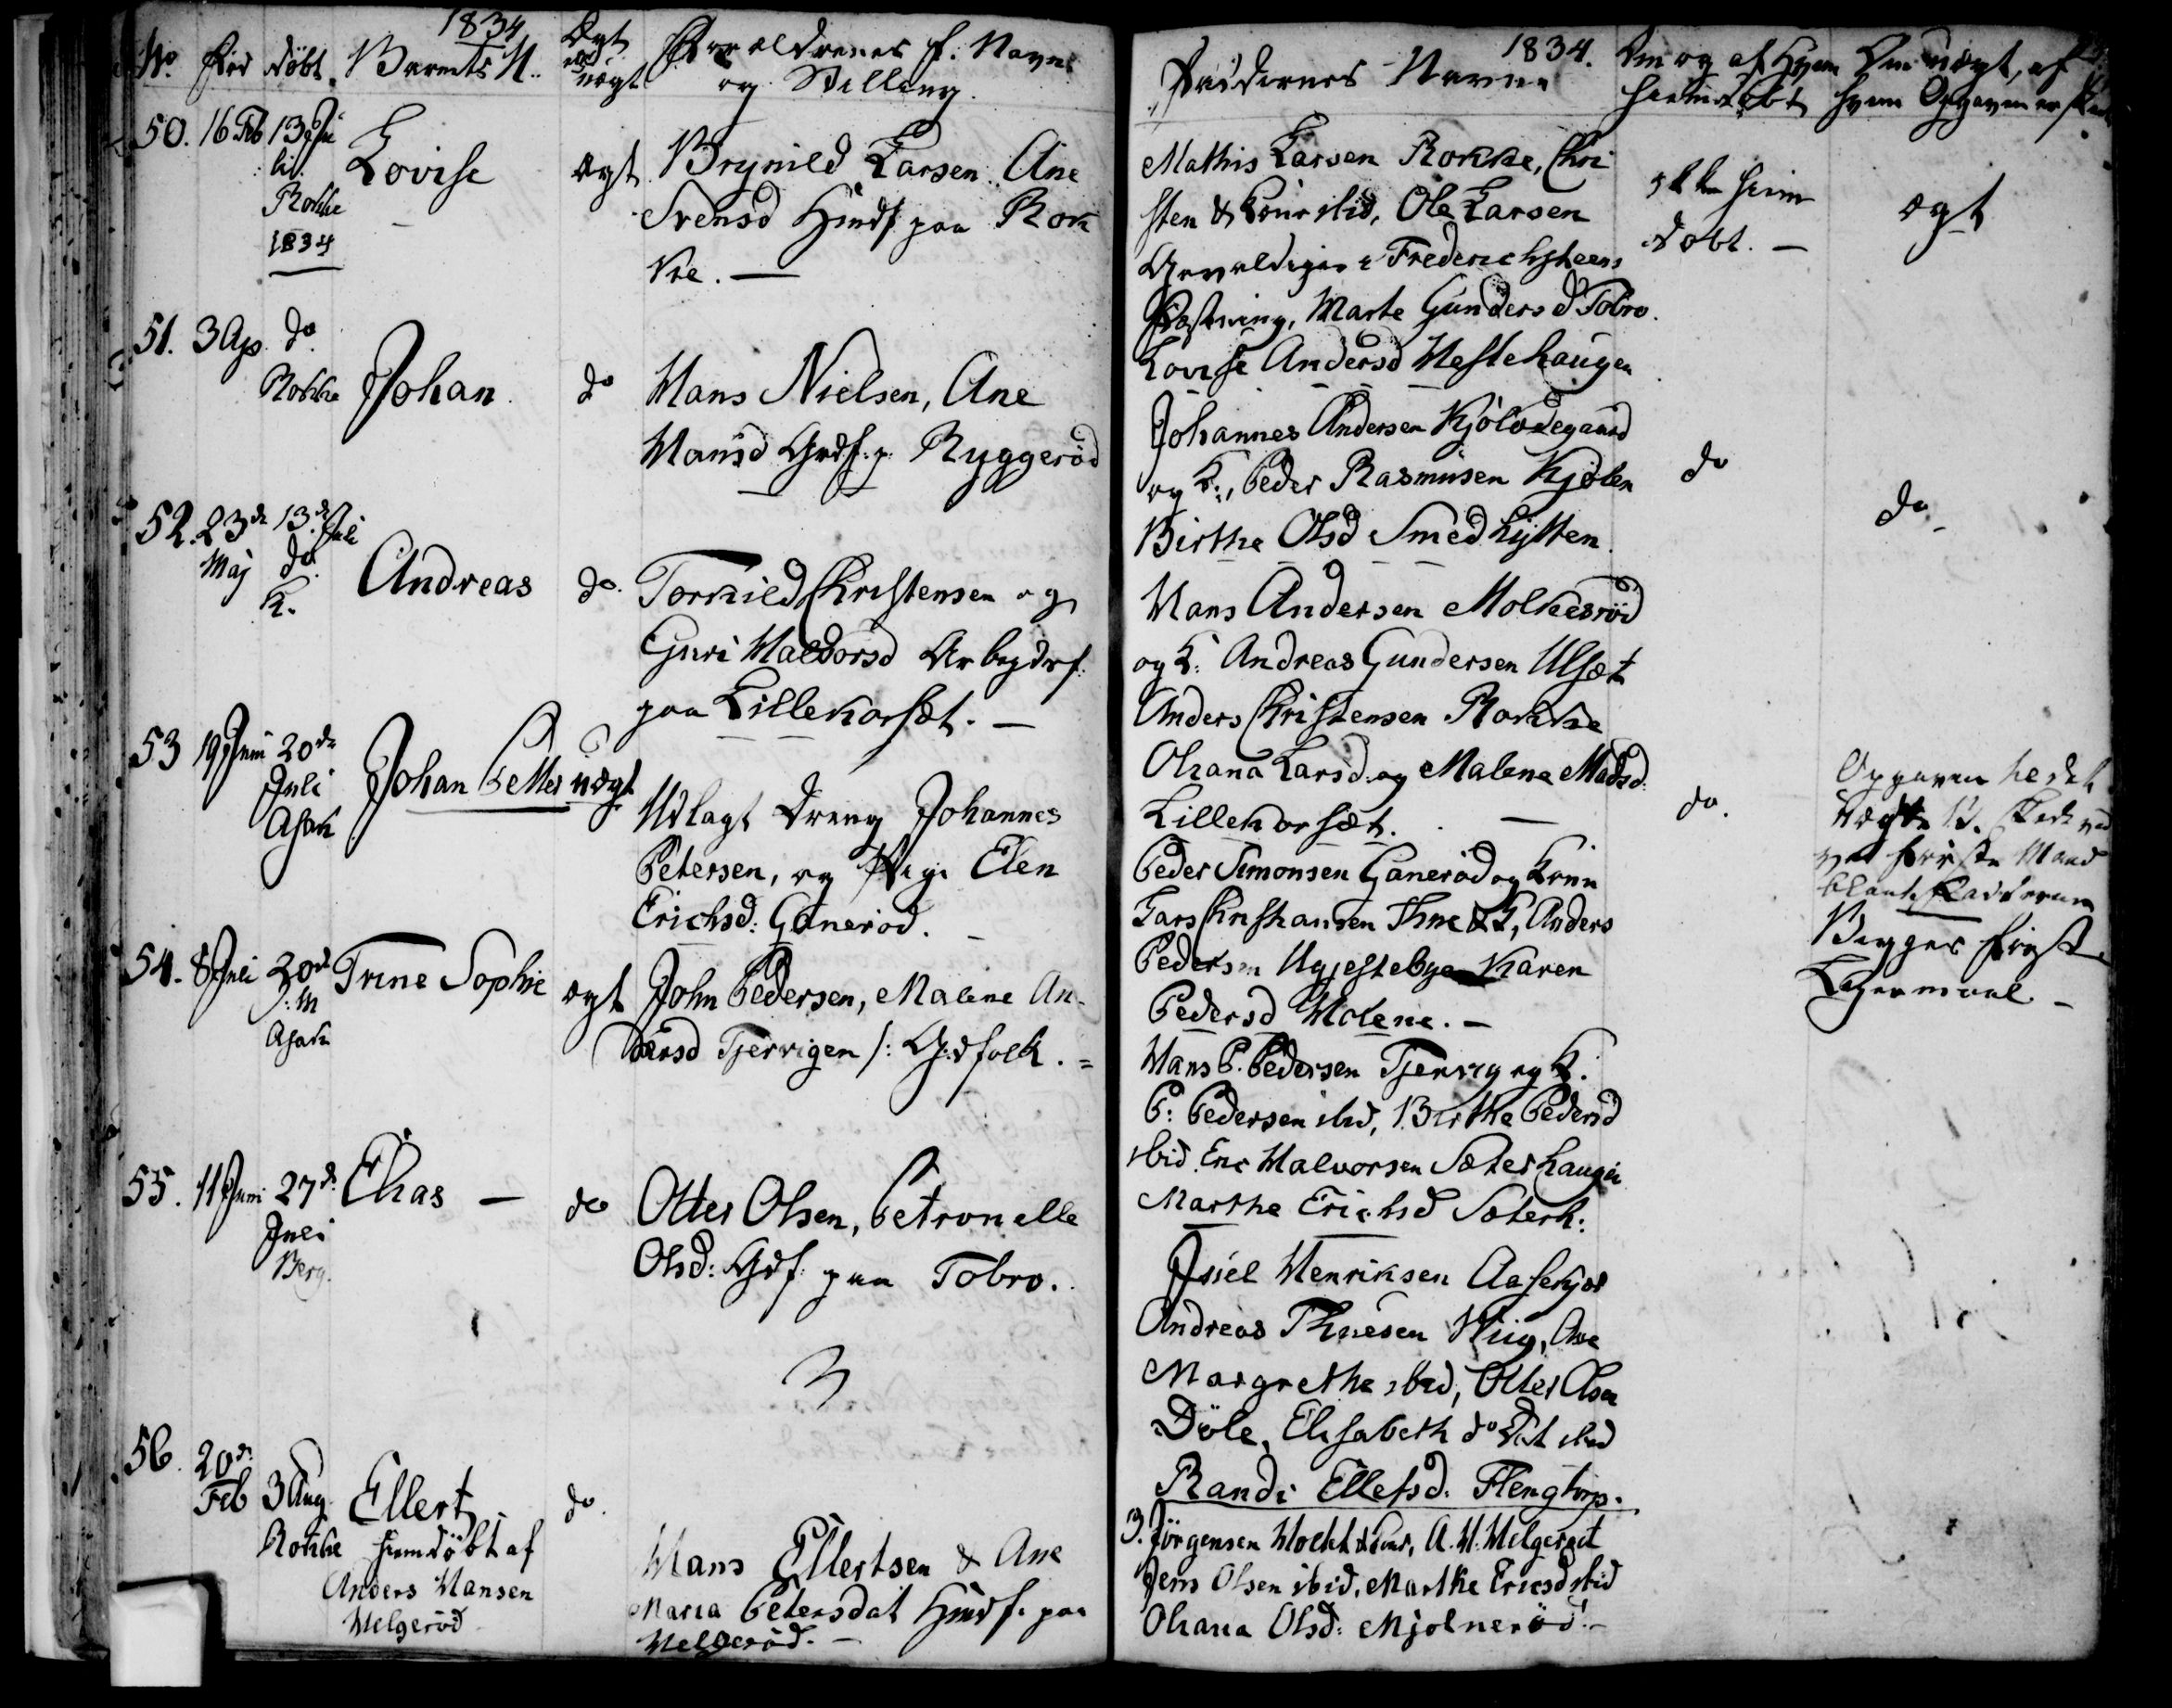 1834
No Fød Døbt. Barnets N. Ægt eld uægt Forældrenes f. Navne og Stilling.
50. 16 Feb 13 Ju
li. Rokke 1834
Lovise
ægt
Brynild Larsen. Ane
Svensd Husf paa Rok
ke. —
51. 3 Ap. do
Rokke
Johan
do
Hans Nielsen, Ane
Hansd Grdf. p. Ryggerød
52. 23de Maj 13de Juli
do K.
Andreas
do.
Torkild Christensen og
Guri Halvorsd Arbejdsf.
paa Lillekorsæt. —
53 19 Juni 20de
Juli
Asak
Johan Petter
uægt
Udlagt Dreng Johannes
Petersen, og Pige Elen
Erichsd: Ganerød. —
54. 8 Juli 20de
J: M
Asak
Trine Sophie
ægt
John Pedersen, Malene An-
dersd Tjervigen /: Gdfolk. =
55. 11 Juni 27de
Juli
Berg.
Elias —
do
Otter Olsen, Petronelle
Olsd: Gdf. paa Tobro.
56. 20de
Feb 3 Aug.
Rokke
Ellert
hiemdøbt af
Anders Hansen
Helgerød
do.
Hans Ellertsen & Ane
Maria Petersdat Husf. paa
Helgerød. —
1834.
Faddernes Navne
Om og af Hvem hiemdøbt
Om uægt, af hvem Opgaven er skeet
Mathis Larsen Rokke, Chri
sten & Kone ibid, Ole Larsen
Gevaldiger i Frederichsteens
Fæstning, Marte Gundersd Tobro.
Lovise Andersd Hestehaugen
ikke hiem
døbt. —
ægt
Johannes Andersen Kjølødegaard
og K., Peder Rasmusen Kjølen
Birthe Olsd Smedhytten.
do
do
Hans Andersen Molkesrød
og K: Andreas Gundersen Ulsæt
Anders Christensen Rokke
Oliana Larsd. og Malene Madsd.
Lillekorsæt. —
do.
Peder Simonsen Ganerød og Kone
Lars Christiansen Thne & K, Anders
Pedersen Ugjestebye Karen
Pedersd Holene. —
Opgaven
uægte
ved første Mand
blant Fadderne
Begges første
Leiermaal. —
Hans P. Pedersen Tjervig og K.
P: Pedersen ibid, Birthe Pedersd
ibid. Eric Halvorsen Sæterhaugen
Marthe Erichsd Sæterh:
Jsiel Henriksen Aaserkjær
Andreas Thuesen Kiig, Ane
Margrethe ibid, Otter Olsen
Døle, Elisabeth do Dat ibid
Randi Ellefsd. Flengtorp.
3. Jørgensen Holkt & Kone, A. H. Helgerød
Jens Olsen ibid, Marthe Ericsd ibid
Oliana Olsd: Mjølnerød. —